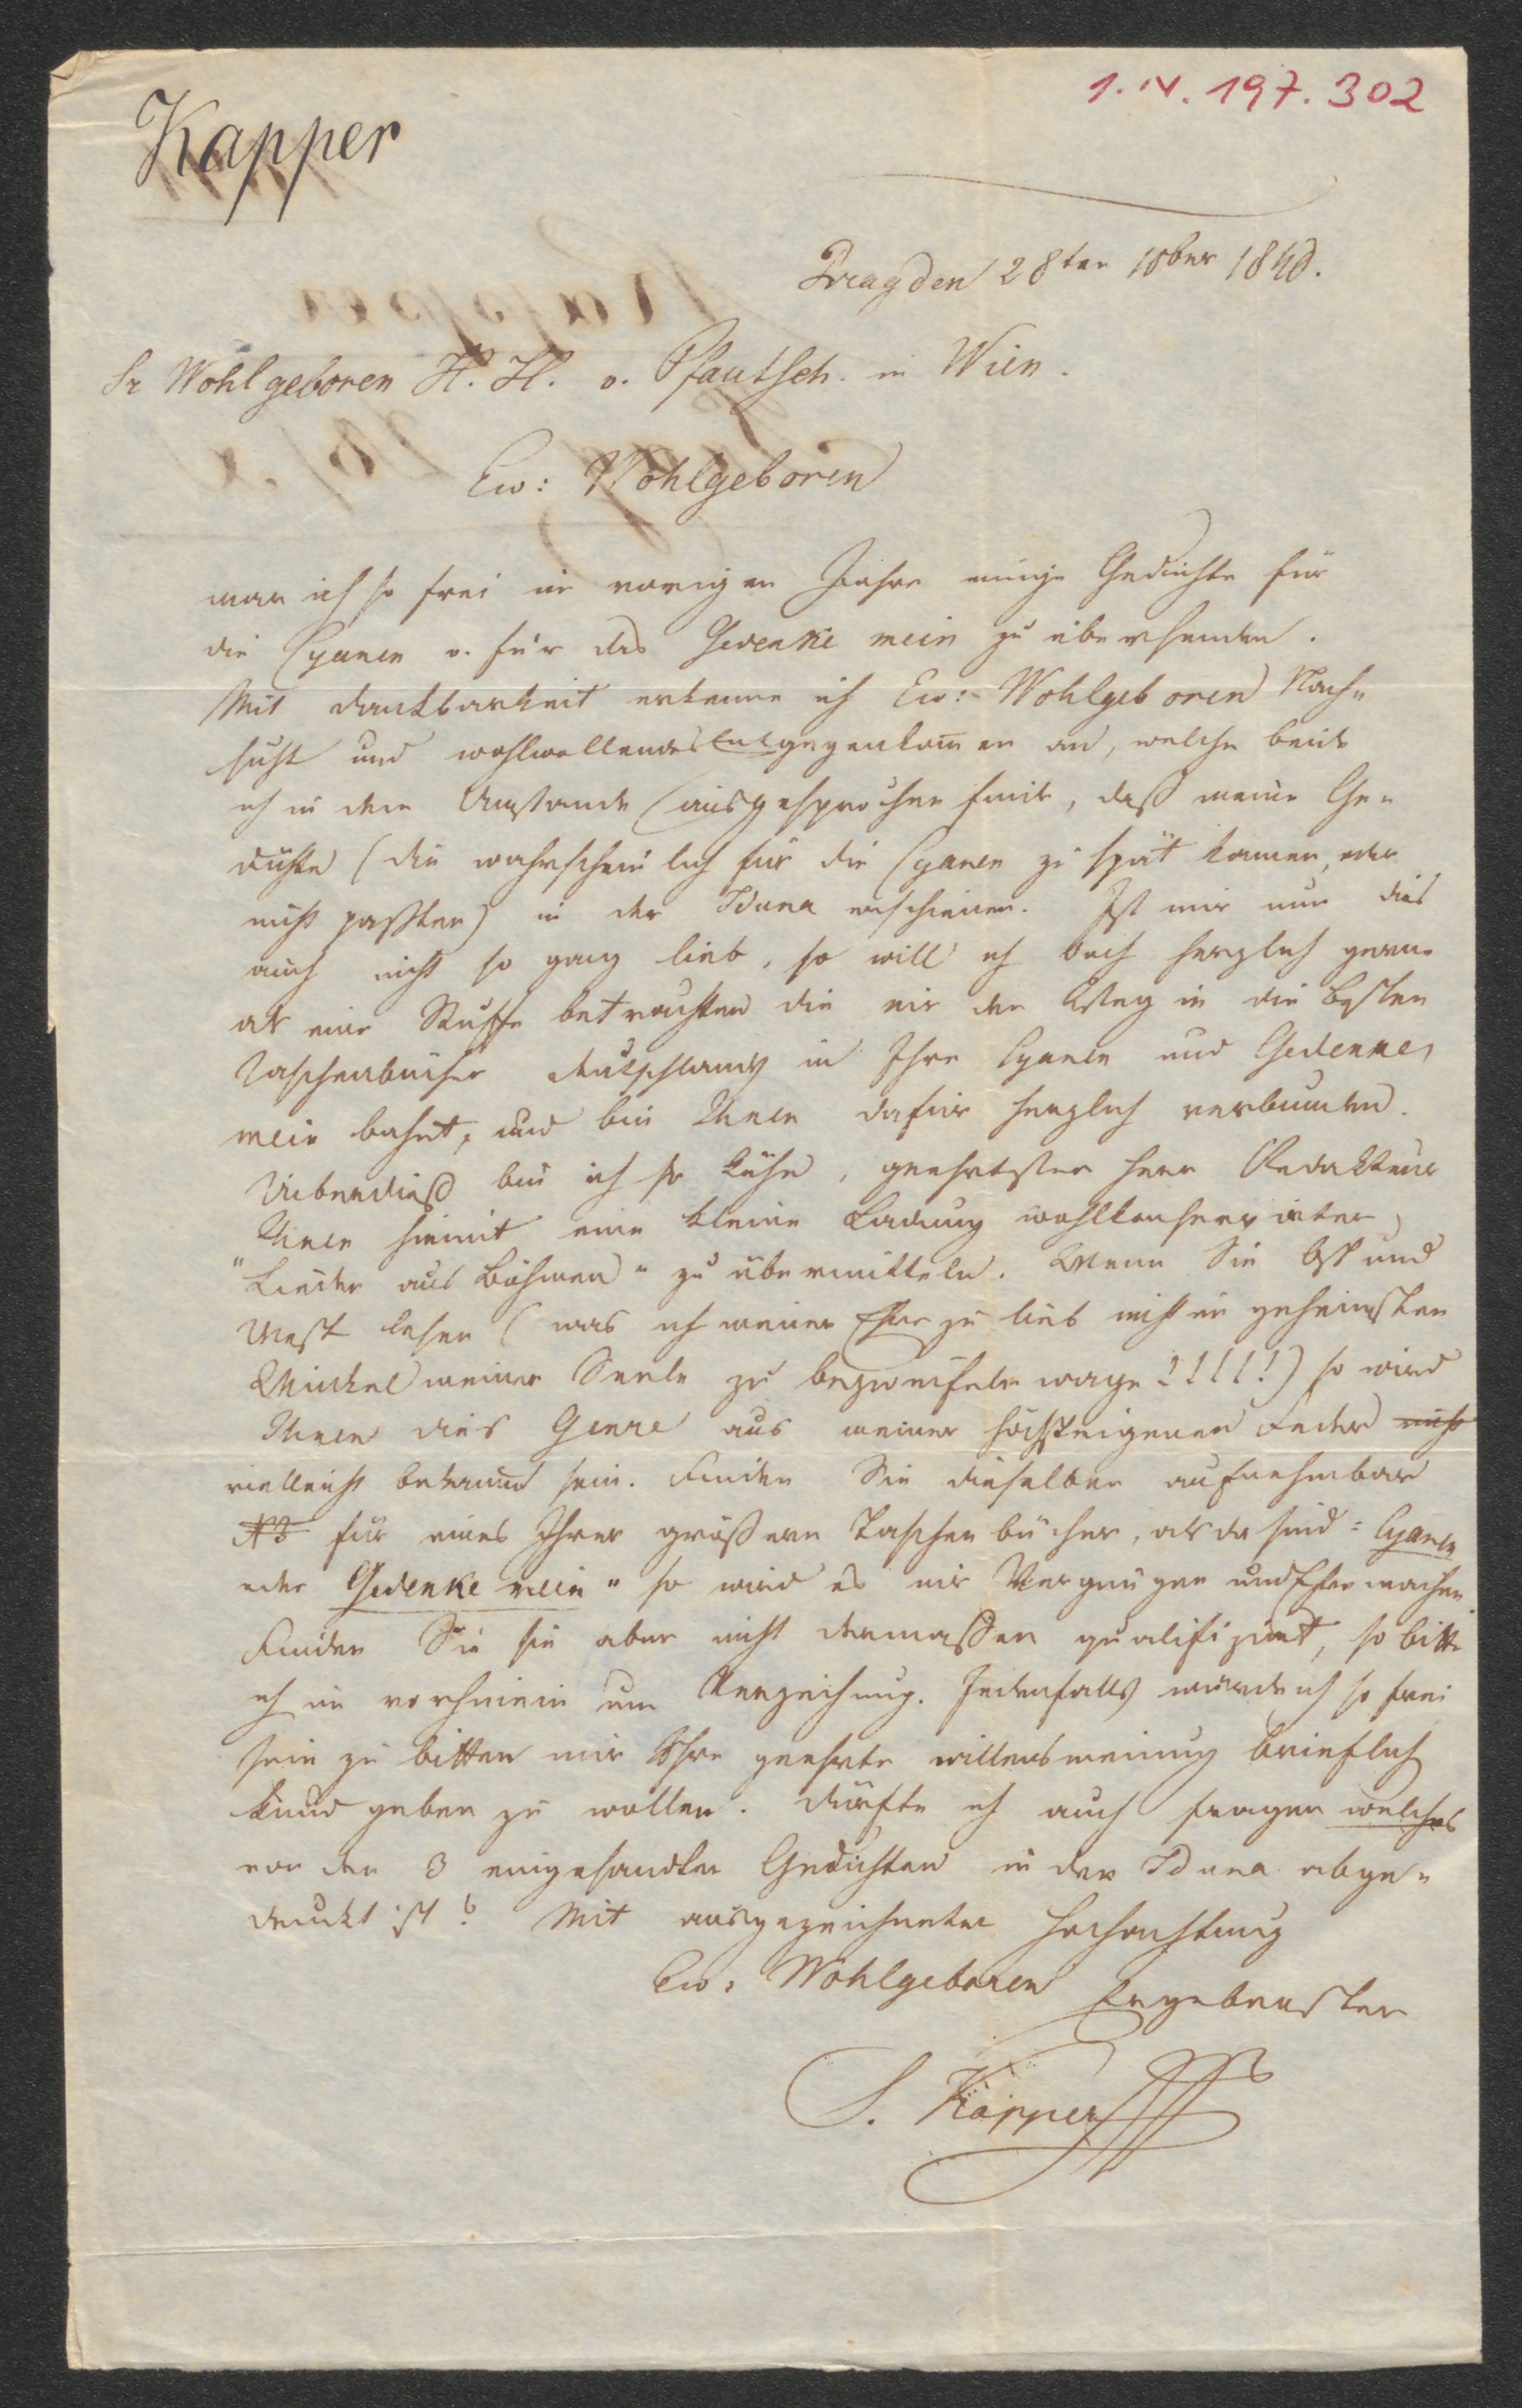 1. IV. 197.302
Kapper
Prag den 28ten 10ber 1840.
Sr Wohlgeboren H. H. v. Pfautsch. in Wien.
Ew: Wohlgeboren
war ich so frei im vorigen Jahre einige Gedichte für
die Cyanen u. für das Gedenke mein zu übersenden.
Mit Dankbarkeit erkenne ich Ew: Wohlgeboren Nach-
sicht und wohlwollendes Entgegenkommen an, welche beide
ich in dem Umstande ausgesprochen finde, daß meine Ge-
dichte (die wahrscheinlich für die Cyanen zu spät kamen, oder
nicht paßten) in der Iduna erschienen. Ist mir nun dies
auch nicht so ganz lieb, so will ich doch herzlich gerne
als eine Stuffe betrachten die mir den Weg in die besten
Taschenbücher Deutschlands in Ihre Cyanen und Gedenke
mein bahnt, und bin Ihnen dafür herzlich verbunden.
Ueberdieß bin ich so kühn, geehrtester Herr Redakteur
Ihnen hiemit eine kleine Ladung wohlkonservirter
"Lieder aus Böhmen" zu übermitteln. Wenn Sie Ost und
West lesen (was ich meiner Ehre zu lieb nicht im geheimsten
Winkel meiner Seele zu bezweifeln wage!!!!!) so wird
Ihnen dies Genre aus meiner höchsteigenen Feder nicht
vielleicht bekannt sein. Finden Sie dieselben aufnehmbar
für eines Ihrer größern Taschenbücher, als da sind: Cyanen
oder Gedenke mein" so wird es mir Vergnügen und Ehre machen.
Finden Sie sie aber nicht dermaßen qualifizirt, so bitte
ich im vorhinein um Verzeihung. Jedenfalls würde ich so frei
sein zu bitten mir Ihre geehrte Willensmeinung brieflich
kund geben zu wollen. Dürfte ich auch fragen welches
von den 3 eingesandten Gedichten in der Iduna abge-
druckt ist? Mit ausgezeichneter Hochachtung
Ew: Wohlgeboren Ergebenster
S. Kapper